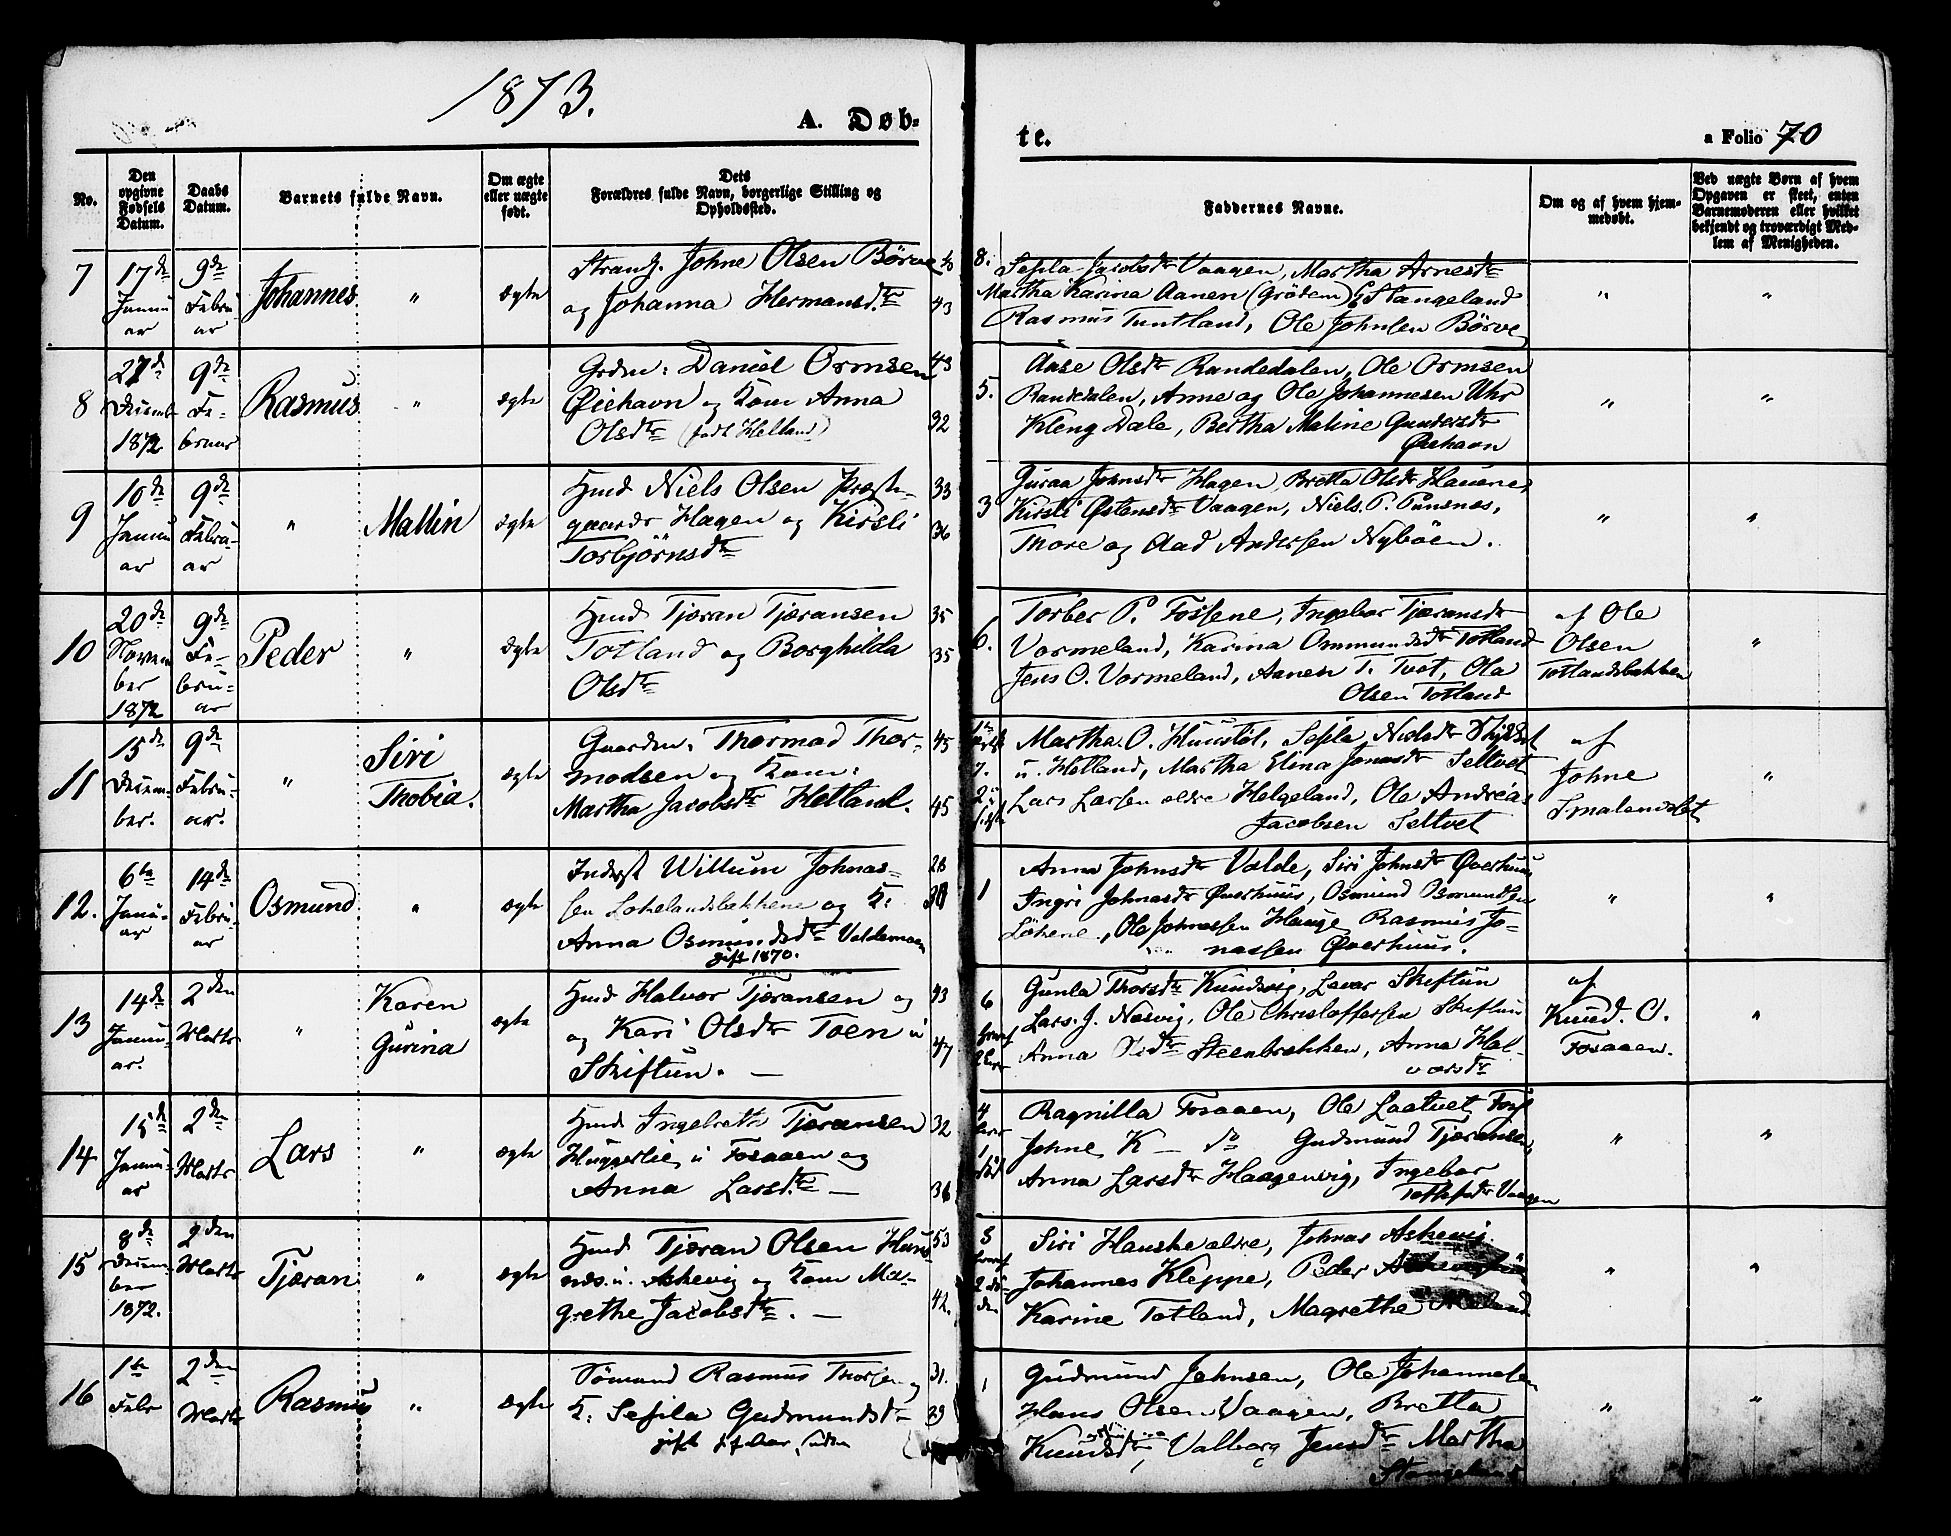 1873.
A. Døb-
te.
a Folio 70
No.
Den opgivne Fødsels Datum.
Daabs Datum.
Barnets fulde Navn.
Om ægte eller uægte født.
Dets Forældres fulde Navn, borgerlige Stilling og Opholdssted.
Faddernes Navne.
Om og af hvem hjemmedøbt.
Ved uægte Børn af hvem Opgaven er skeet, enten Barnemoderen eller hvilket bekjendt og troværdigt Medlem af Menigheden.
7
17de Januar
9de Februar
Johannes
"
ægte
Strands. Johne Olsen Börve
og Johanna Hermansdtr
43
8.
Sesila Jacobsdtr Vaagen, Martha Arnesdtr
Martha Karina Aanen (Grödem) Stangeland
Rasmus Tuntland, Ole Johnsen Börve
"
"
8
27de Decemb 1872
9de Februar
Rasmus
"
ægte
Grdm: Daniel Ormsen
Øiehavn og Kone Anna
Olsdtr (født Helland)
43
32
5.
Aase Olsdtr Randedalen, Ole Ormsen
Randedalen, Anne og Ole Johannesen Uhr
Kleng Dale, Bertha Maline Gundersdtr
Øiehavn
"
"
9
10de Januar
9de Februar
"
Mallin
ægte
Hmd Niels Olsen Præste-
gaards Hagen og Kirsti
Torbjörnsdtr
33
36
3
Guraa Johnsdtr Hagen, Bretta Olsdtr Hauene,
Kirsti Østensdtr Vaagen, Niels. P. Punsnes,
Thore og Aad Andersen Nyböen.
"
"
10
20de November 1872
9de Februar
Peder
"
ægte
Hmd Tjæran Tjæransen
Totland og Borghilda
Olsdtr
35
35
6.
Torber P. Fossene, Ingebor Tjæransdtr
Vormeland, Karina Ommundsdtr Totland
Jens O. Vormeland, Aanen T. Tvot, Ola
Olsen Totland
af Ole
Olsen
Totlandsbakken
"
11
15de December.
9de Februar.
"
Siri
Thobia.
ægte
Gaardm: Thormod Thor-
modsen og Kone:
Martha Jacobsdtr Hetland.
45
45
7.
Martha. O. Huustöl, Sesila Nielsdtr
u. Hetland, Martha Elina Jonasdtr Seltvet
Lars Larsen ældre Helgeland, Ole Andreas
Jacobsen Seltvet
af
Johne
Smalandslet
"
12.
6te Januar
14de Februar
Osmund
"
ægte
Inderst Willum Johnas-
sen Lokelandsbakkene og K:
Anna Osmundsdtr
gift 1870.
28
1
Anna Johnsdtr Valde, Siri Johnsdtr Øverhuus
Ingri Johnasdtr Øverhuus, Osmund Osmundsen
Lökene, Ole Johnassen Hauge Rasmus Jo-
nassen Øverhuus.
"
"
13
14de Januar.
2den Marts
"
Karen
Gurina
ægte
Hmd Halvor Tjæransen og
og Kari Olsdtr Toen i
Skiftun. —
43
47
6
Gunla Thorsdtr Kundsvig, Lavar Skiftun
Lars. J. Næsvig, Ole Christoffersen Skiftun
Anna Steenbrekken, Anna Hal-
vorsdtr
af
Knud. O.
Fosaaen.
"
14
15de Januar
2den Marts
Lars
"
ægte
Hmd Ingebreth Tjæransen
Huggerlie u Fosaaen og
Anna Larsdtr —
32
36
4
1
Ragnilla Fosaaen, Ole Laatvet
Johne K — do Gudmund Tjæransen
Anna Larsdtr Haagenvig, Ingebor
Vaagen
"
"
15
8de December 1872.
2den Marts
Tjæran
"
ægte
Hmd Tjæran Olsen
u. Askevig og Kone Ma-
grethe Jacobsdtr. —
53
42.
5
Siri Hauske ældre, Johnas Askevig
Johannes Kleppe, Peder
Karine Totland, Magrethe
"
"
16
1te Febr
2den Marts
Rasmus
"
ægte
Sömand Rasmus Thorsen og
K: Sesila Gudmundsdtr
gift
31.
29
1
Gudmund Johnsen, Ole Johannesen
Hans Olsen Vaagen, Bretta
Knudsdtr, Valborg Jensdtr Martha
Stangeland
"
"